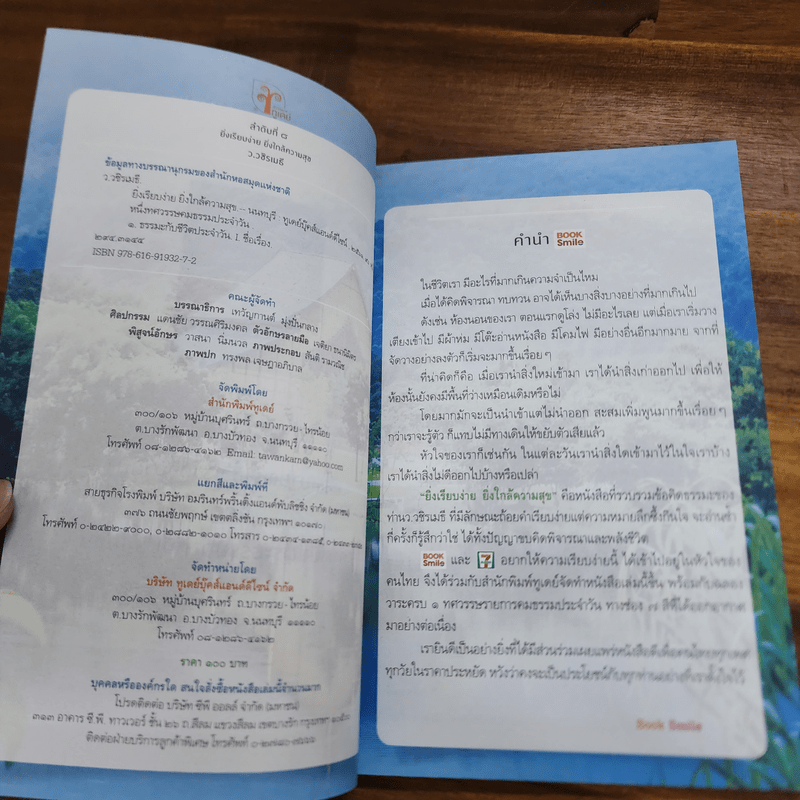 ลำดับที่ ๘
ยิ่งเรียบง่าย ยิ่งใกล้ความสุข
ว.วชิรเมธี
ข้อมูลทางบรรณานุกรมของสำนักหอสมุดแห่งชาติ
ว.วชิรเมธี.
ยิ่งเรียบง่าย ยิ่งใกล้ความสุข.-- นนทบุรี : ทูเดย์บุ๊คส์แอนด์ดีไซน์,
หนึ่งทศวรรษคมธรรมประจำวัน
๑. ธรรมะกับชีวิตประจำวัน. I. ชื่อเรื่อง.
๒๙๔.๓๑๔๔
ISBN 978-616-91932-7-2
คณะผู้จัดทำ
บรรณาธิการ เทวัญกานต์ มุ่งปั่นกลาง
ศิลปกรรม แดนชัย วรรณศิริมงคล ตัวอักษรลายมือ เจติยา
พิสูจน์อักษร วาสนา นิ่มนวล ภาพประกอบ สันติ
ภาพปก ทรงพล เจษฎาอภิบาล
จัดพิมพ์โดย
สำนักพิมพ์ทูเดย์
๓๐๐/๑๐๖ หมู่บ้านบุศรินทร์ ถ.บางกรวย-ไทรน้อย
ต.บางรักพัฒนา อ.บางบัวทอง จ.นนทบุรี ๑๑๑๑๐
โทรศัพท์ ๐๘-๑๒๘๖-๔๑๖๒ Email: tawankam@yahoo.com
แยกสีและพิมพ์ที่
สายธุรกิจโรงพิมพ์ บริษัท อมรินทร์พริ้นติ้งแอนด์พับลิชชิ่ง จำกัด (มหาชน)
๓๗๖ ถนนชัยพฤกษ์ เขตตลิ่งชัน กรุงเทพฯ ๑๐๑๗๐
โทรศัพท์ ๐-๒๔๒๒-๙๐๐๐, ๐-๒๘๘๒-๑๐๑๐ โทรสาร
จัดจำหน่ายโดย
บริษัท ทูเดย์บุ๊คส์แอนด์ดีไซน์ จำกัด
๓๐๐/๑๐๖ หมู่บ้านบุศรินทร์ ถ.บางกรวย-ไทรน้อย
ต.บางรักพัฒนา อ.บางบัวทอง จ.นนทบุรี ๑๑๑๑๐
โทรศัพท์ ๐๘-๑๒๘๖-๔๑๖๒
ราคา ๑๐๐ บาท
บุคคลหรือองค์กรใด สนใจสั่งซื้อหนังสือเล่มนี้จำนวนมาก
โปรดติดต่อ บริษัท ซีพี ออลล์ จำกัด (มหาชน)
๓๑๓ อาคาร ซี.พี. ทาวเวอร์ ชั้น ๒๖ ถ.สีลม แขวงสีลม เขตบางรัก กรุงเทพฯ ๑๐๕๐๐
ติดต่อฝ่ายบริการลูกค้าพิเศษ โทรศัพท์
คำนำ BOOK Smile
ในชีวิตเรา มีอะไรที่มากเกินความจำเป็นไหม
เมื่อได้คิดพิจารณา ทบทวน อาจได้เห็นบางสิ่งบางอย่างที่มากเกินไป
ดังเช่น ห้องนอนของเรา ตอนแรกดูโล่ง ไม่มีอะไรเลย แต่เมื่อเราเริ่มวาง
เตียงเข้าไป มีผ้าห่ม มีโต๊ะอ่านหนังสือ มีโคมไฟ มีอย่างอื่นอีกมากมาย จากที่
จัดวางอย่างลงตัวก็เริ่มจะมากขึ้นเรื่อยๆ
ที่น่าคิดก็คือ เมื่อเรานำสิ่งใหม่เข้ามา เราได้นำสิ่งเก่าออกไป เพื่อให้
ห้องนั้นยังคงมีพื้นที่ว่างเหมือนเดิมหรือไม่
โดยมากมักจะเป็นนำเข้าแต่ไม่นำออก สะสมเพิ่มพูนมากขึ้นเรื่อยๆ
กว่าเราจะรู้ตัว ก็แทบไม่มีทางเดินให้ขยับตัวเสียแล้ว
หัวใจของเราก็เช่นกัน ในแต่ละวันเรานำสิ่งใดเข้ามาไว้ในใจเราบ้าง
เราได้นำสิ่งไม่ดีออกไปบ้างหรือเปล่า
“ยิ่งเรียบง่าย ยิ่งใกล้ความสุข” คือหนังสือที่รวบรวมข้อคิดธรรมะของ
ท่านว.วชิรเมธี ที่มีลักษณะถ้อยคำเรียบง่ายแต่ความหมายลึกซึ้งกินใจ จะอ่านซ้ำ
กี่ครั้งก็รู้สึกว่าใช่ ได้ทั้งปัญญาขบคิดพิจารณาและพลังชีวิต
BOOK Smile และ 7 ELEVEN อยากให้ความเรียบง่ายนี้ ได้เข้าไปอยู่ในหัวใจของ
คนไทย จึงได้ร่วมกับสำนักพิมพ์ทูเดย์จัดทำหนังสือเล่มนี้ขึ้น พร้อมกับฉลอง
วาระครบ ๑ ทศวรรษรายการคมธรรมประจำวัน ทางช่อง ๗ สีที่ได้ออกอากาศ
มาอย่างต่อเนื่อง
เรายินดีเป็นอย่างยิ่งที่ได้มีส่วนร่วมเผยแพร่หนังสือดีเพื่อคนไทยทุกเพศ
ทุกวัยในราคาประหยัด หวังว่าคงจะเป็นประโยชน์กับทุกท่านอย่างที่เราตั้งใจไว้
Book Smile